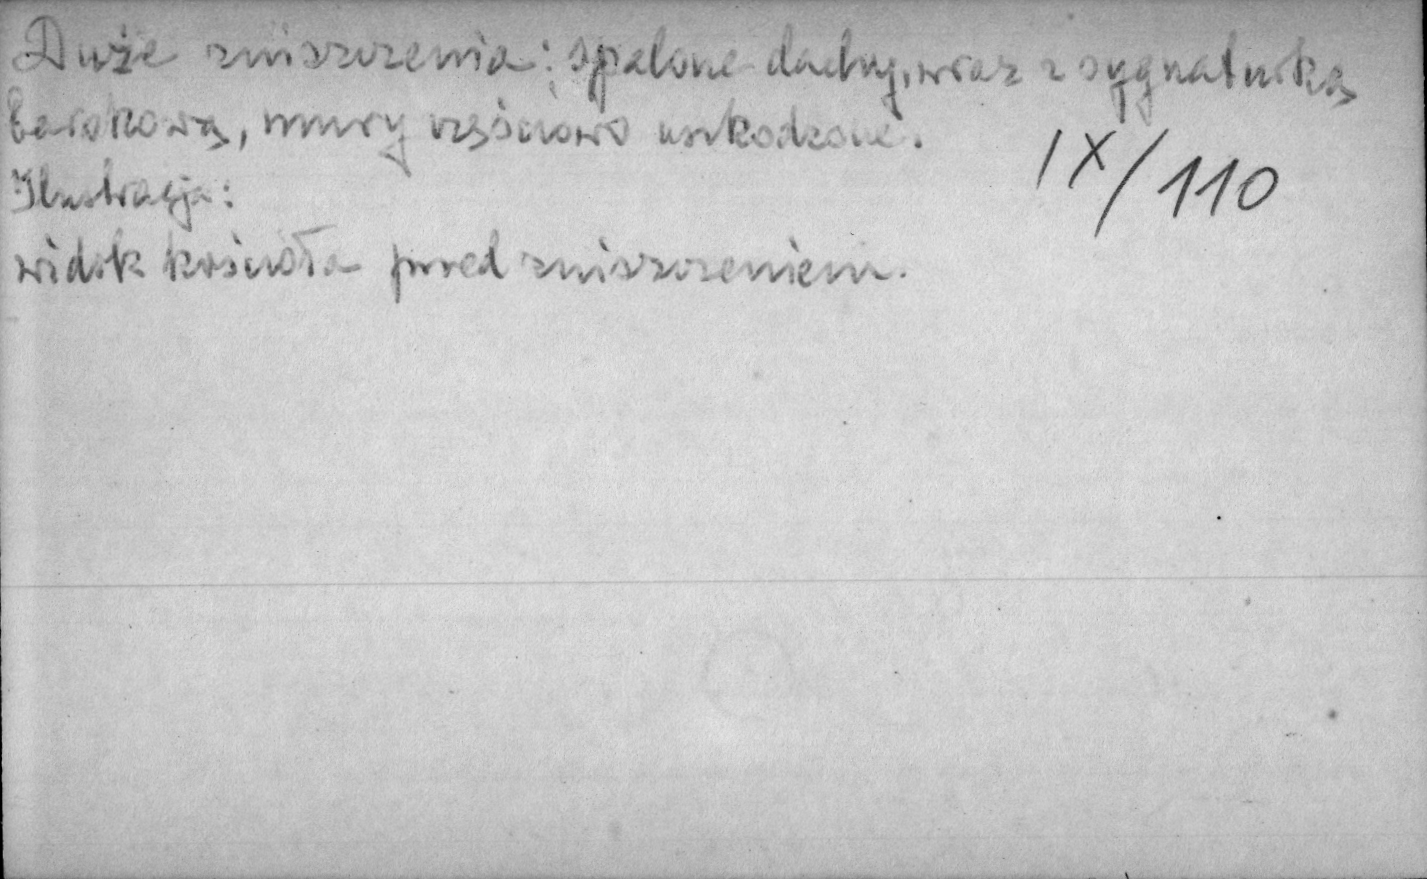 Duże zniszczenia: spalone dachy, wraz z sygnaturką
barokową, mury częściowo uszkodzone.
IX/110
Ilustracja:
widok kościoła przed zniszczeniem.